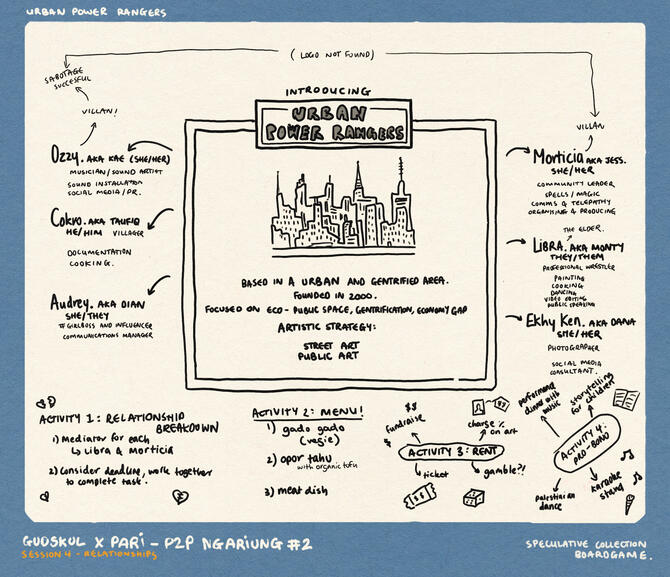 URBAN POWER RANGERS
( LOGO NOT FOUND)
SABOTAGE
SUCCESFUL
VILLAN!
VILLAN
INTRODUCING
URBAN
POWER RANGERS
BASED IN A URBAN AND GENTRIFIED AREA.
FOUNDED IN 2000.
FOCUSED ON ECO - PUBLIC SPACE, GENTRIFICATION, ECONOMY GAP
ARTISTIC STRATEGY:
STREET ART
PUBLIC ART
Ozzy. AKA KAE (SHE/HER)
MUSICIAN/SOUND ARTIST
SOUND INSTALLATION
SOCIAL MEDIA/PR.
Cokro. AKA TAUFIQ
HE/HIM VILLAGER
DOCUMENTATION
COOKING.
Audrey. AKA DIAN
SHE/THEY
#GIRLBOSS AND INFLUENCER
COMMUNICATIONS MANAGER
Morticia AKA JESS.
SHE/HER
COMMUNITY LEADER
SPELLS/MAGIC
COMMS & TELEPATHY
ORGANISING & PRODUCING
THE ELDER.
LIBRA. AKA MONTY
THEY/THEM
PROFESSIONAL WRESTLER
PAINTING
COOKING
DANCING
VIDEO EDITING
PUBLIC SPEAKING
Ekhy Ken. AKA DANA
SHE/HER
PHOTOGRAPHER
SOCIAL MEDIA
CONSULTANT.
ACTIVITY 1: RELATIONSHIP
BREAKDOWN
1) Mediator for each
↳ Libra & Morticia
2) Consider deadline, work together
to complete task.
ACTIVITY 2: MENU!
1) gado gado
(vegie)
2) opor tahu
with organic tofu
3) meat dish
$$
fundraise
$
charge %
on art
ACTIVITY 3: RENT
ticket
gamble?!
$$
performance
dinner with
music
storytelling
for children
ACTIVITY 4:
PRO-BONO
palestinian
dance
karaoke
stand
GUDSKUL X PARI - P2P NGARIUNG #2
SESSION 4 - RELATIONSHIPS
SPECULATIVE COLLECTION
BOARDGAME.